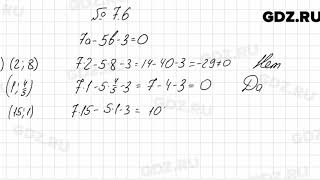 GDZ.RU
№ 7.6
7a-5b-3=0
) (2; 8) 7·2-5·8-3=14-40-3=-29≠0 Нет
(1; 4/5) 7·1-5·4/5-3=7-4-3=0 Да
(15; 1) 7·15-5·1-3= 10